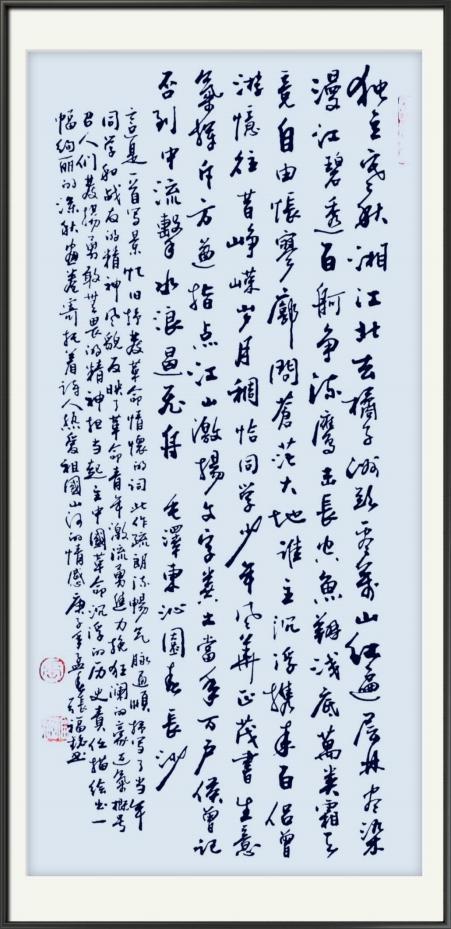 独立寒秋湘江北去橘子洲头看萬山红遍层林尽染
漫江碧透百舸争流鹰击长空鱼翔浅底萬类霜天
竞自由怅寥廓問蒼茫大地谁主沉浮携来百侣曾
游憶往昔峥嵘岁月稠恰同学少年风華正茂書生意
氣挥斥方遒指点江山激揚文字粪土當年万户侯曾记
否到中流擊水浪遏飞舟 毛澤東沁園春長沙
这是一首写景忆旧抒發革命情懷的词此作疏朗流暢气脉通顺描写了当年
同学和战友的精神风貌反映了革命青年激流勇進力挽狂澜的豪迈氣概号
召人们發揚勇敢無畏的精神担当起主中國革命沉浮的历史责任描绘出一
幅绚丽的深秋画卷寄托着诗人熱爱祖國山河的情感 庚子年孟春張福